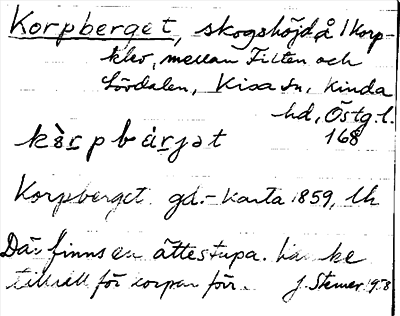 Korpberget, skogshöjd å Korp-
klev, mellan Filten och
Lövdalen, Kisa sn, Kinda
hd, Östg. l.
168
kò̀rpbärjat
Korpberget gd.-karta 1859, Uh
Där finns en ättestupa.
tillhåll för korpar förr. J. Stener